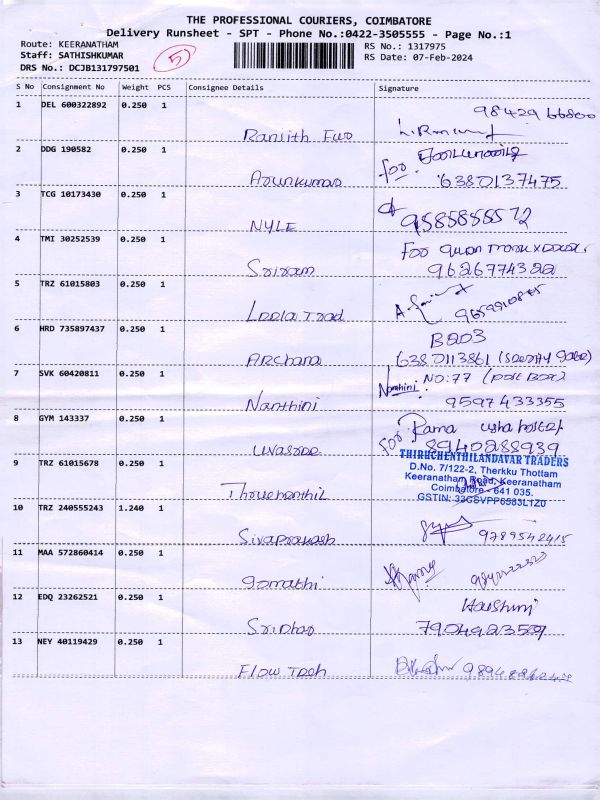 THE PROFESSIONAL COURIERS, COIMBATORE
Delivery Runsheet - SPT - Phone No.:0422-3505555 - Page No.:1
Route: KEERANATHAM
RS No.: 1317975
Staff: SATHISHKUMAR
RS Date: 07-Feb-2024
DRS No.: DCJB131797501
5
S No Consignment No Weight PCS Consignee Details Signature
1 DEL 600322892 0.250 1
98429 66800
Ranjith
2 DDG 190582 0.250 1
for
Arunkumar
6380137475
3 TCG 10173430 0.250 1
9585888572
NYLE
4 TMI 30252539 0.250 1
For
Sriram
9626774322
5 TRZ 61015803 0.250 1
Leela Trad
6 HRD 735897437 0.250 1
B203
Archana
6380113861
7 SVK 60420811 0.250 1
NO:77
Nanthini
Nanthini
9597433355
8 GYM 143337 0.250 1
For Rama usha hostel
8940288939
9 TRZ 61015678 0.250 1
THIRUCHENTHILANDAVAR TRADERS
D.No. 7/122-2, Therkku Thottam
Keeranatham Road, Keeranatham
Coimbatore - 641 035.
GSTIN: 33GSVPP6583L1Z0
10 TRZ 240555243 1.240 1
Sivaprakash
9789542415
11 MAA 572860414 0.250 1
gomathi
12 EDQ 23262521 0.250 1
Harshini
Sridhar
13 NEY 40119429 0.250 1
Flow Tech